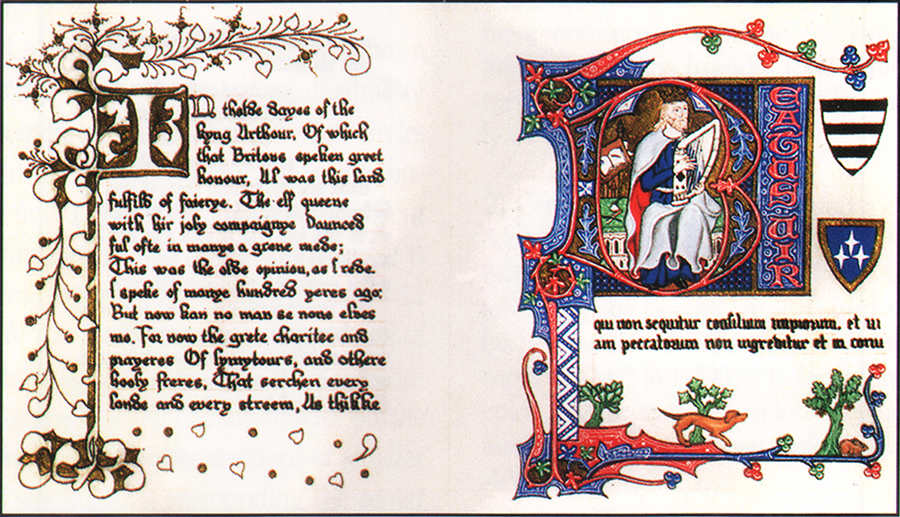 IN tholde dayes of the
kyng Arthour, Of which
that Britons speken greet
honour, Al was this land
fulfild of faierye. The elf queene
with hir joly compaignye Daunced
ful ofte in manye a grene mede;
This was the olde opinion, as I rede.
I speke of manye hundred yeres ago;
But now kan no man se none elves
mo. For now the grete charitee and
prayeres Of lymytours, and othere
hooly freres, That serchen every
londe and every streem, As thikke
BEATUSUIR
qui non sequitur consilium impiorum, et ui
am peccatorum non ingreditur et in conu